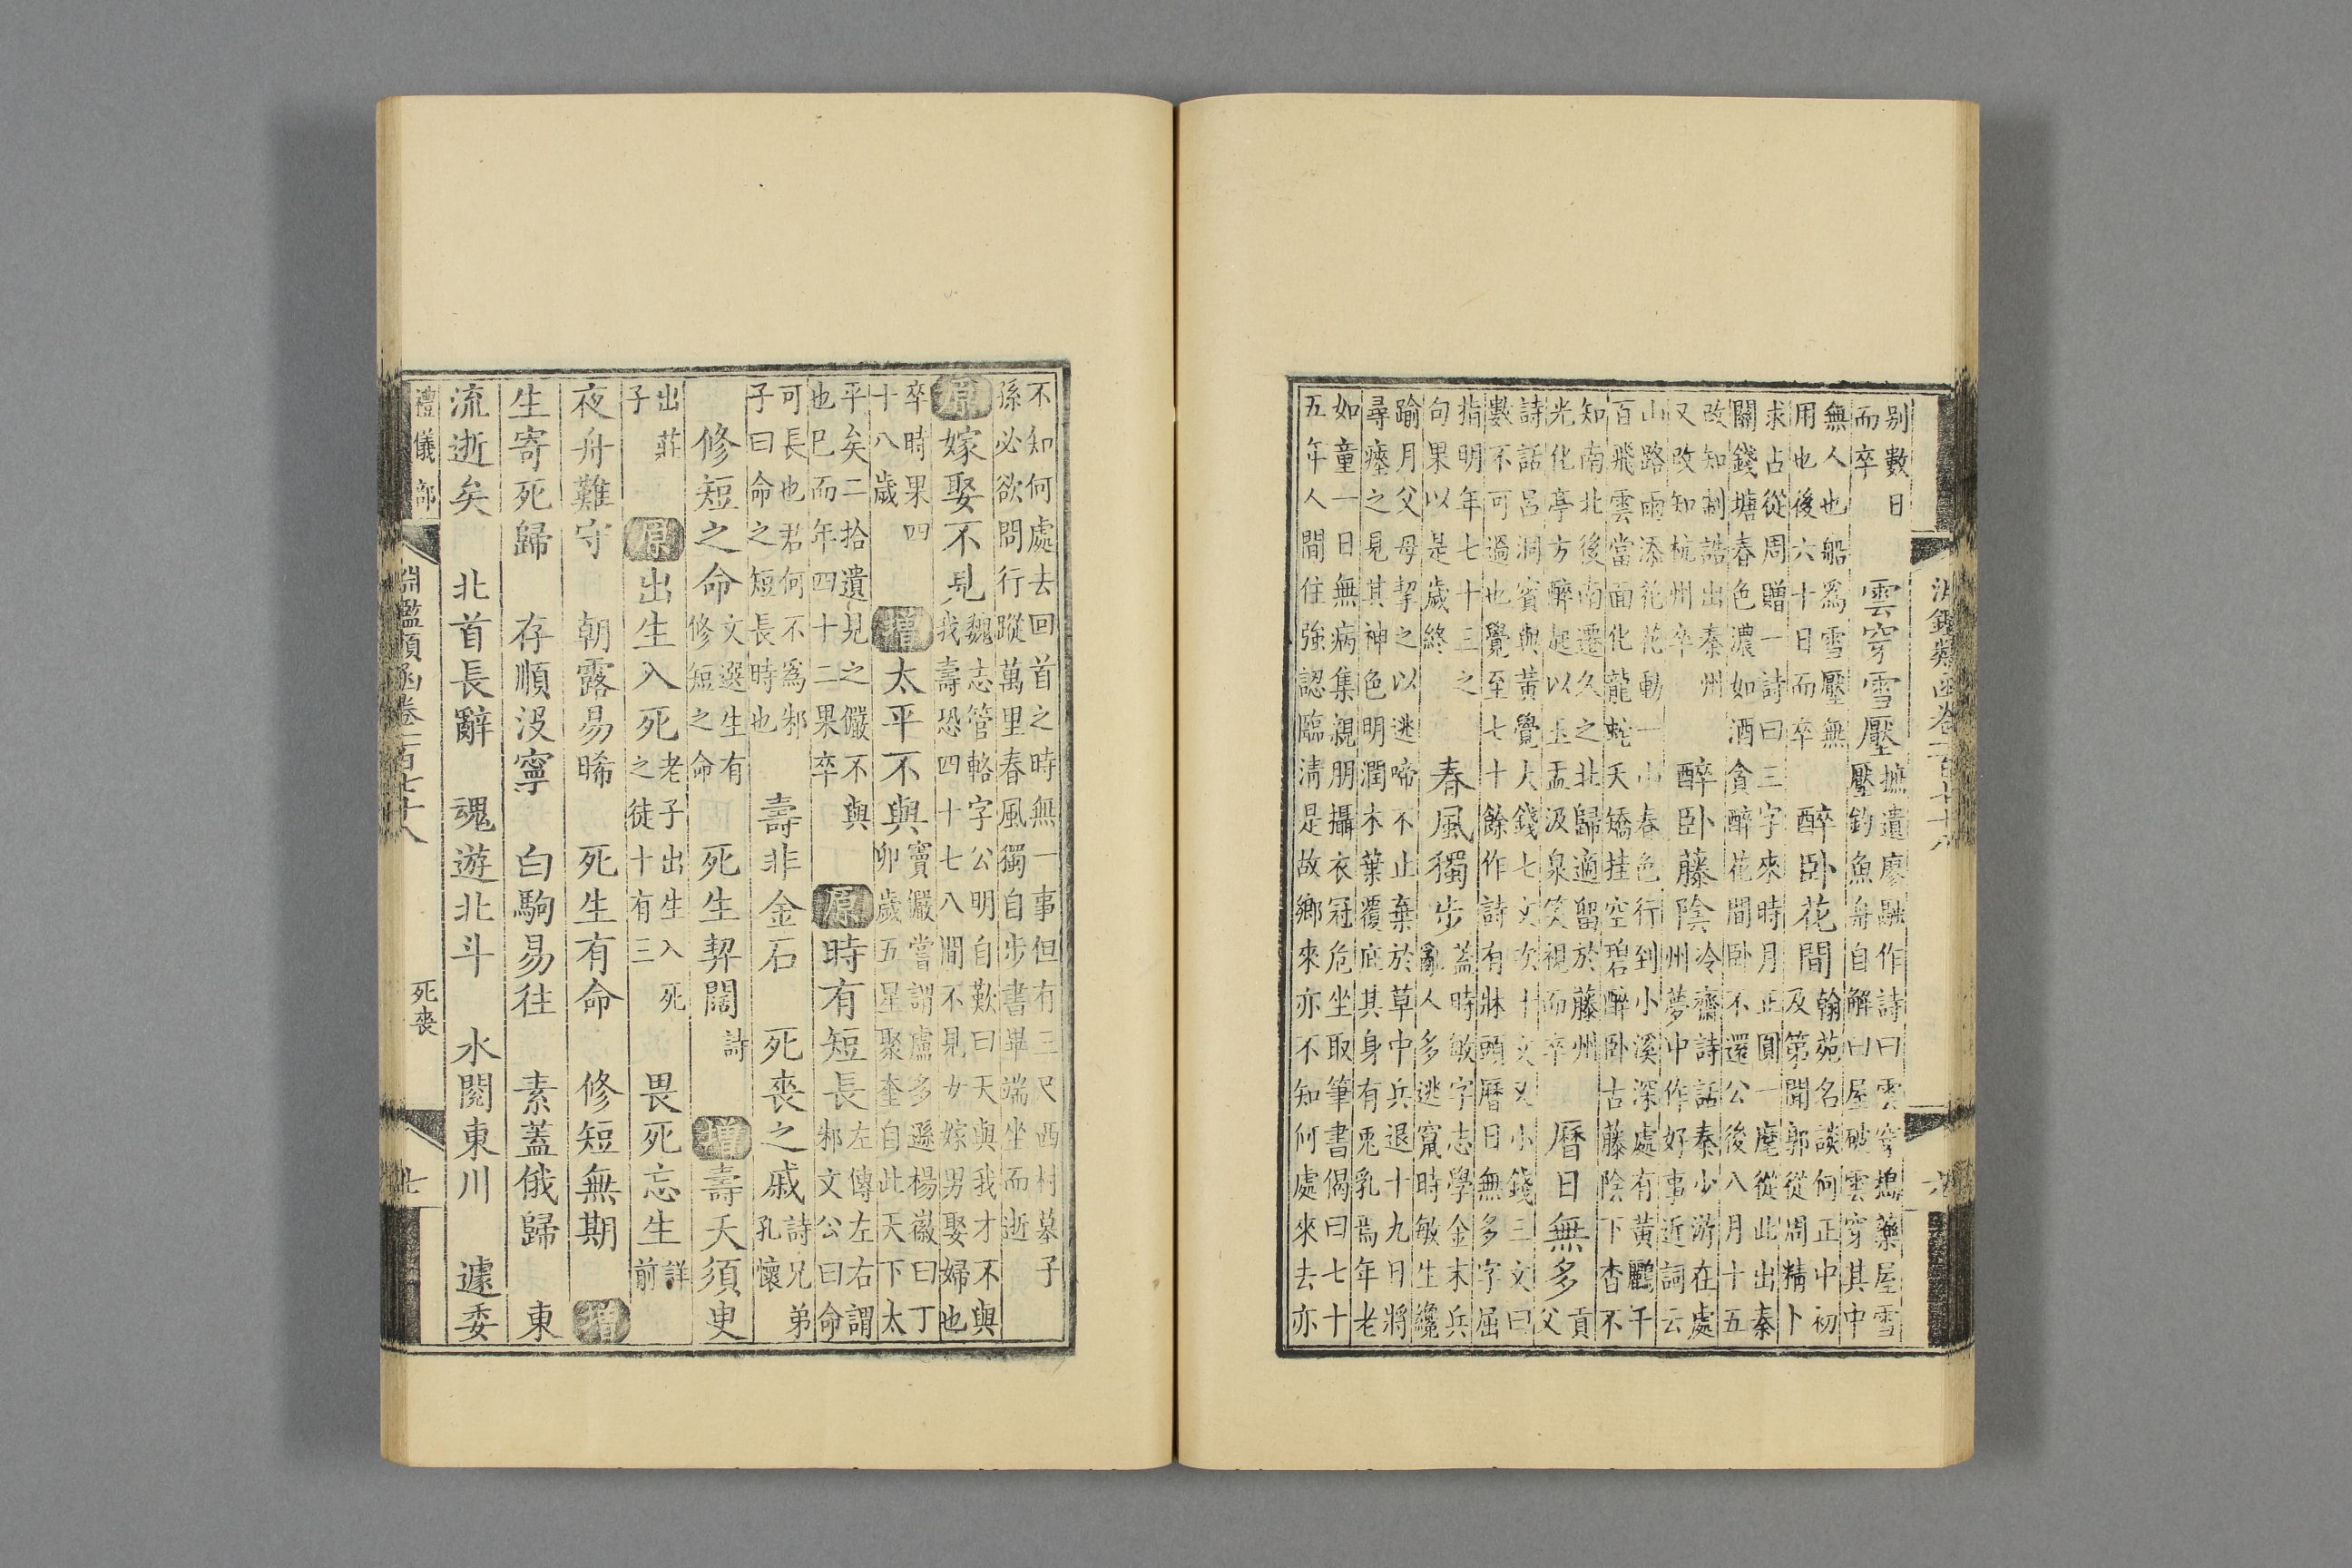 淵鑑類函卷二百七十八
别數日
而卒
雲穿雪壓
摭遺廖融作詩曰雲穿搗藥屋雪
壓釣魚舟自解曰屋破雲穿其中
無人也船爲雪壓無
用也後六十日而卒
醉卧花間
翰苑名談何正中初
及第聞郭從周精卜
求占從周贈一詩曰三字來時月正圓一麾從此出秦
關錢塘春色濃如酒貪醉花間卧不還公後八月十五
改知制誥出秦州
又改知杭州卒
醉卧藤陰
冷齋詩話秦少游在處
州夢中作好事近詞云
山路雨添花花動一山春色行到小溪深處有黃鸝千
百飛雲當面化龍蛇夭矯挂空碧醉卧古藤陰下杳不
知南北後南遷久之北歸適留於藤州
光化亭方醉起以玉盂汲泉笑視而卒
曆日無多
貢
父
詩話呂洞賓與黃覺大錢七文次十文又小錢三文曰
數不可過也覺至七十餘作詩有牀頭曆日無多字屈
指明年七十三之
句果以是歲終
春風獨步
蓋時敏字志學金末兵
亂人多逃竄時敏生纔
踰月父母挈之以逃啼不止棄於草中兵退十九日將
尋瘞之見其神色明潤木葉覆庇其身有兎乳焉年老
如童一日無病集親朋攝衣冠危坐取筆書偈曰七十
五年人間住強認臨淸是故鄉來亦不知何處來去亦
不知何處去回首之時無一事但有三尺西村墓子
孫必欲問行蹤萬里春風獨自步書畢端坐而逝
原嫁娶不見
魏志管輅字公明自歎曰天與我才不與
我壽恐四十七八間不見女嫁男娶婦也
卒時果四
十八歲
增太平不與
竇儼嘗謂盧多遜楊徽曰丁
卯歲五星聚奎自此天下太
平矣二拾遺見之儼不與
也已而年四十二果卒
原時有短長
左傳左右謂
邾文公曰命
可長也君何不爲邾
子曰命之短長時也
壽非金石 死喪之戚
詩兄弟
孔懷
修短之命
文選生有
修短之命
死生契闊
詩
增壽夭須臾
出莊
子
原出生入死
老子出生入死
之徒十有三
畏死忘生
詳
前
夜舟難守 朝露易晞 死生有命 修短無期 增
生寄死歸 存順沒寧 白駒易往 素蓋俄歸 東
流逝矣 北首長辭 魂遊北斗 水閱東川 遽委
禮儀部
淵鑑類函卷二百七十八
死喪
七